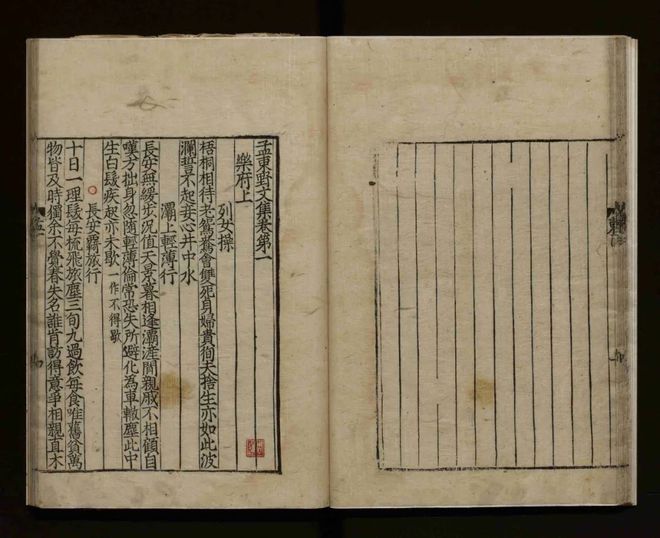 孟東野文集卷第一
樂府上
列女操
梧桐相待老鴛鴦會雙死貞婦貴狥夫捨生亦如此波
瀾誓不起妾心井中水
灞上輕薄行
長安無緩步況值天景暮相逢灞滻間親戚不相顧自
嘆方拙身忽隨輕薄倫常恐失所避化為車轍塵此中
生白髮疾走亦未歇一作不得歇
長安羈旅行
十日一理髮每梳飛旅塵三旬九過飲每食唯舊貧萬
物皆及時獨余不覺春失名誰肯訪得意爭相親直木